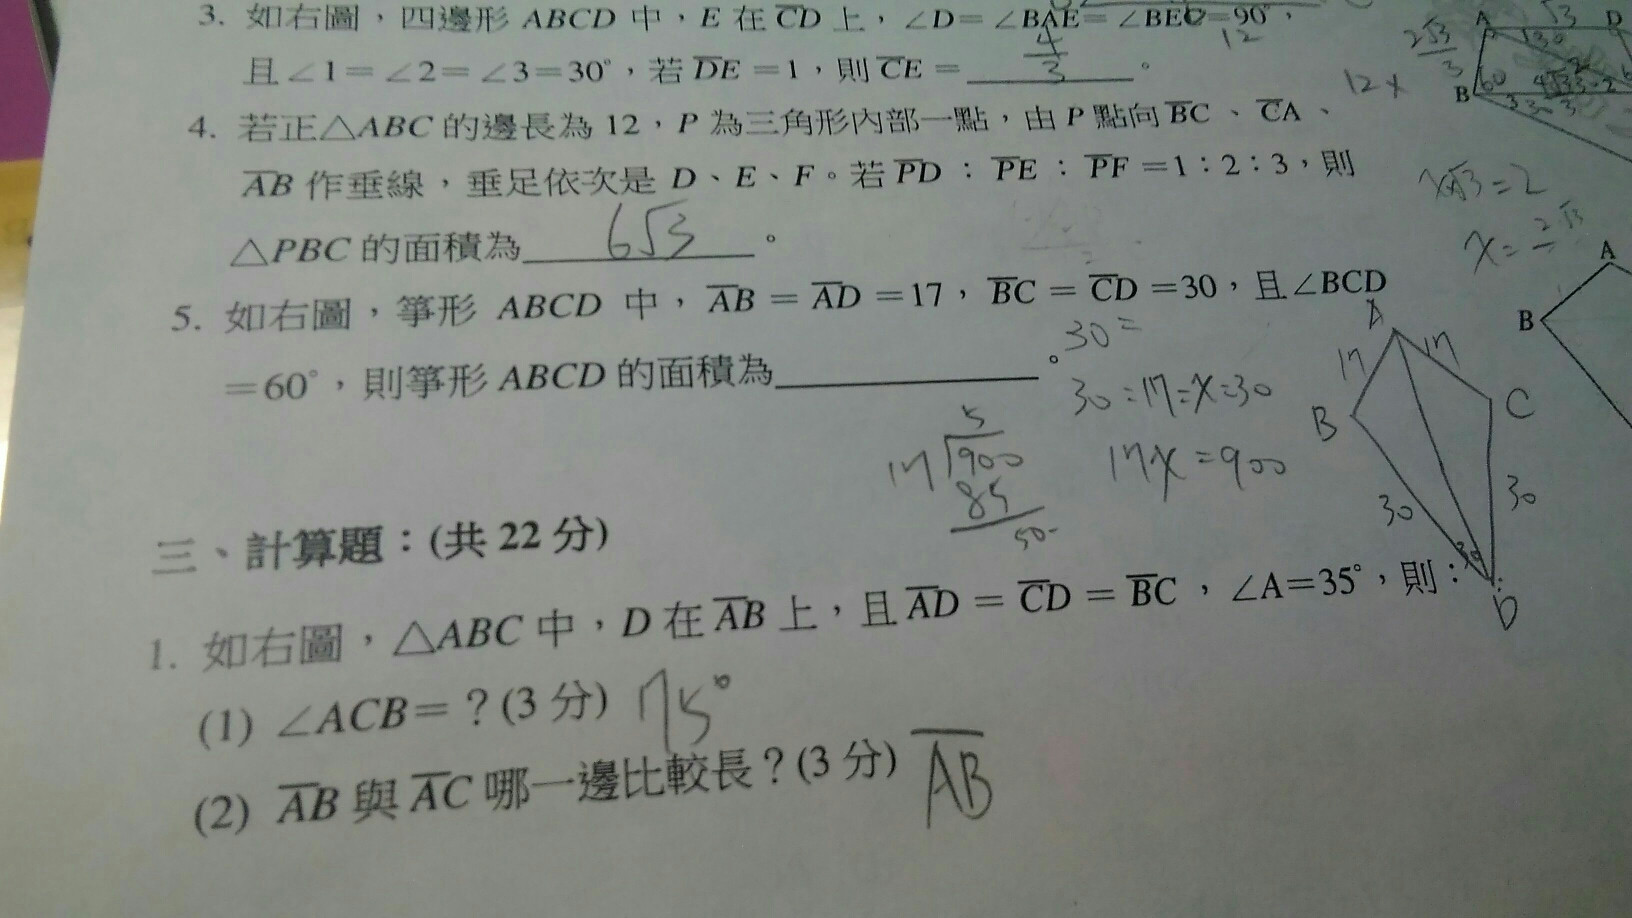 3. 如右圖，四邊形 ABCD 中，E 在 CD 上，∠D=∠BAE=∠BEC=90°，
12
且∠1=∠2=∠3=30°，若 DE =1，則 CE = 4/3 。
4. 若正△ABC 的邊長為 12，P 為三角形內部一點，由 P 點向 BC 、 CA 、
AB 作垂線，垂足依次是 D、E、F。若 PD : PE : PF =1:2:3，則
△PBC 的面積為 6√3 。
5. 如右圖，箏形 ABCD 中， AB = AD =17， BC = CD =30，且∠BCD
=60°，則箏形 ABCD 的面積為 。
30=
30:17=x:30
17x=900
5
17 900
85
50
A
17
17
B
C
30
30
30
D
A
B
√3
D
A
2√3
3
30
60
B
12x
x√3=2
x=
三、計算題：(共 22 分)
1. 如右圖，△ABC 中，D 在 AB 上，且 AD = CD = BC ，∠A=35°，則：
(1) ∠ACB=？(3 分) 75°
(2) AB 與 AC 哪一邊比較長？(3 分) AB